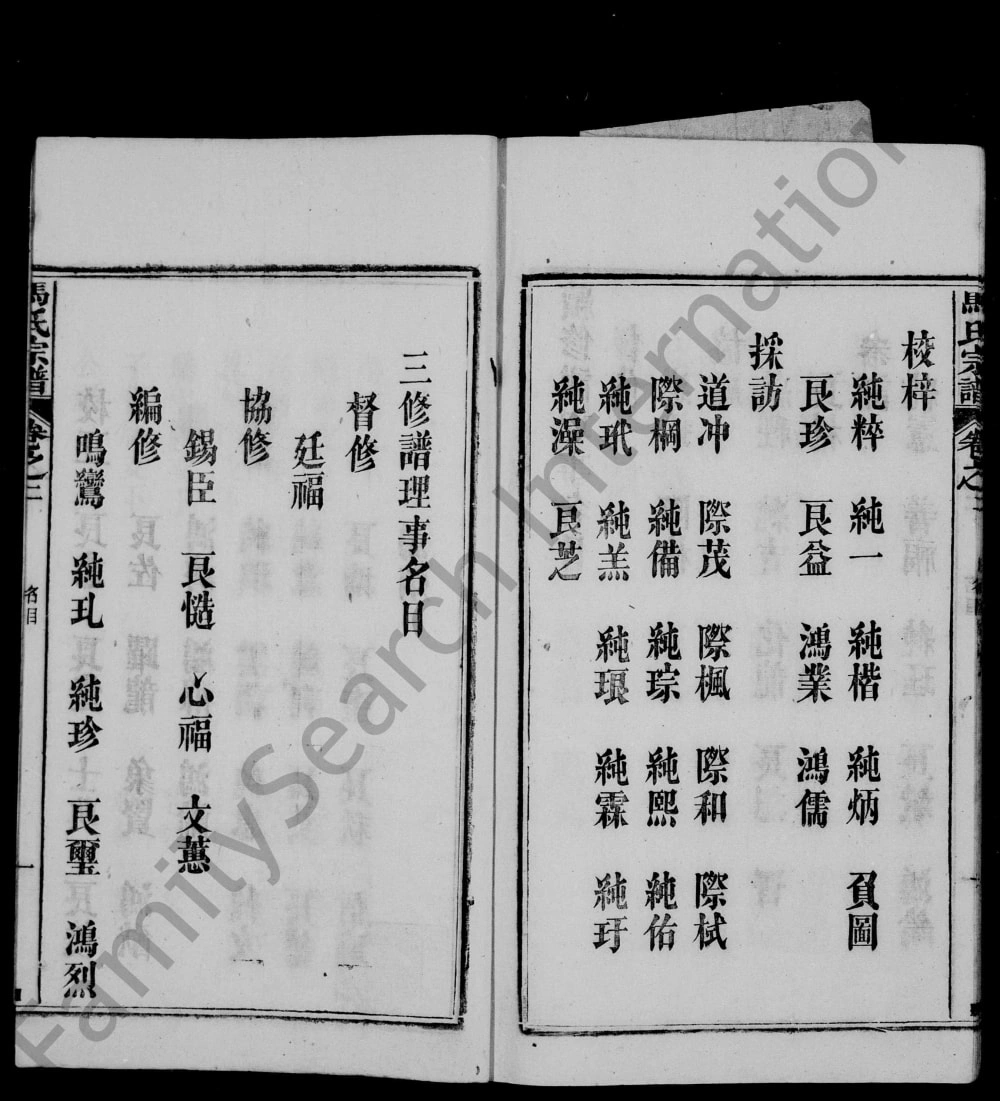 校梓
純粹 純一 純楷 純炳 負圖
艮珍 艮益 鴻業 鴻儒
採訪
道冲 際茂 際楓 際和 際栻
際棡 純備 純琮 純熙 純佑
純玳 純羔 純琅 純霖 純玗
純澡 艮芝
三修譜理事名目
督修
廷福
協修
錫臣 艮慥 心福 文蕙
編修
鳴鸞 純玌 純珍 艮璽 鴻烈
馬氏宗譜 卷之二 名目 一
馬氏宗譜 卷之
FamilySearch International